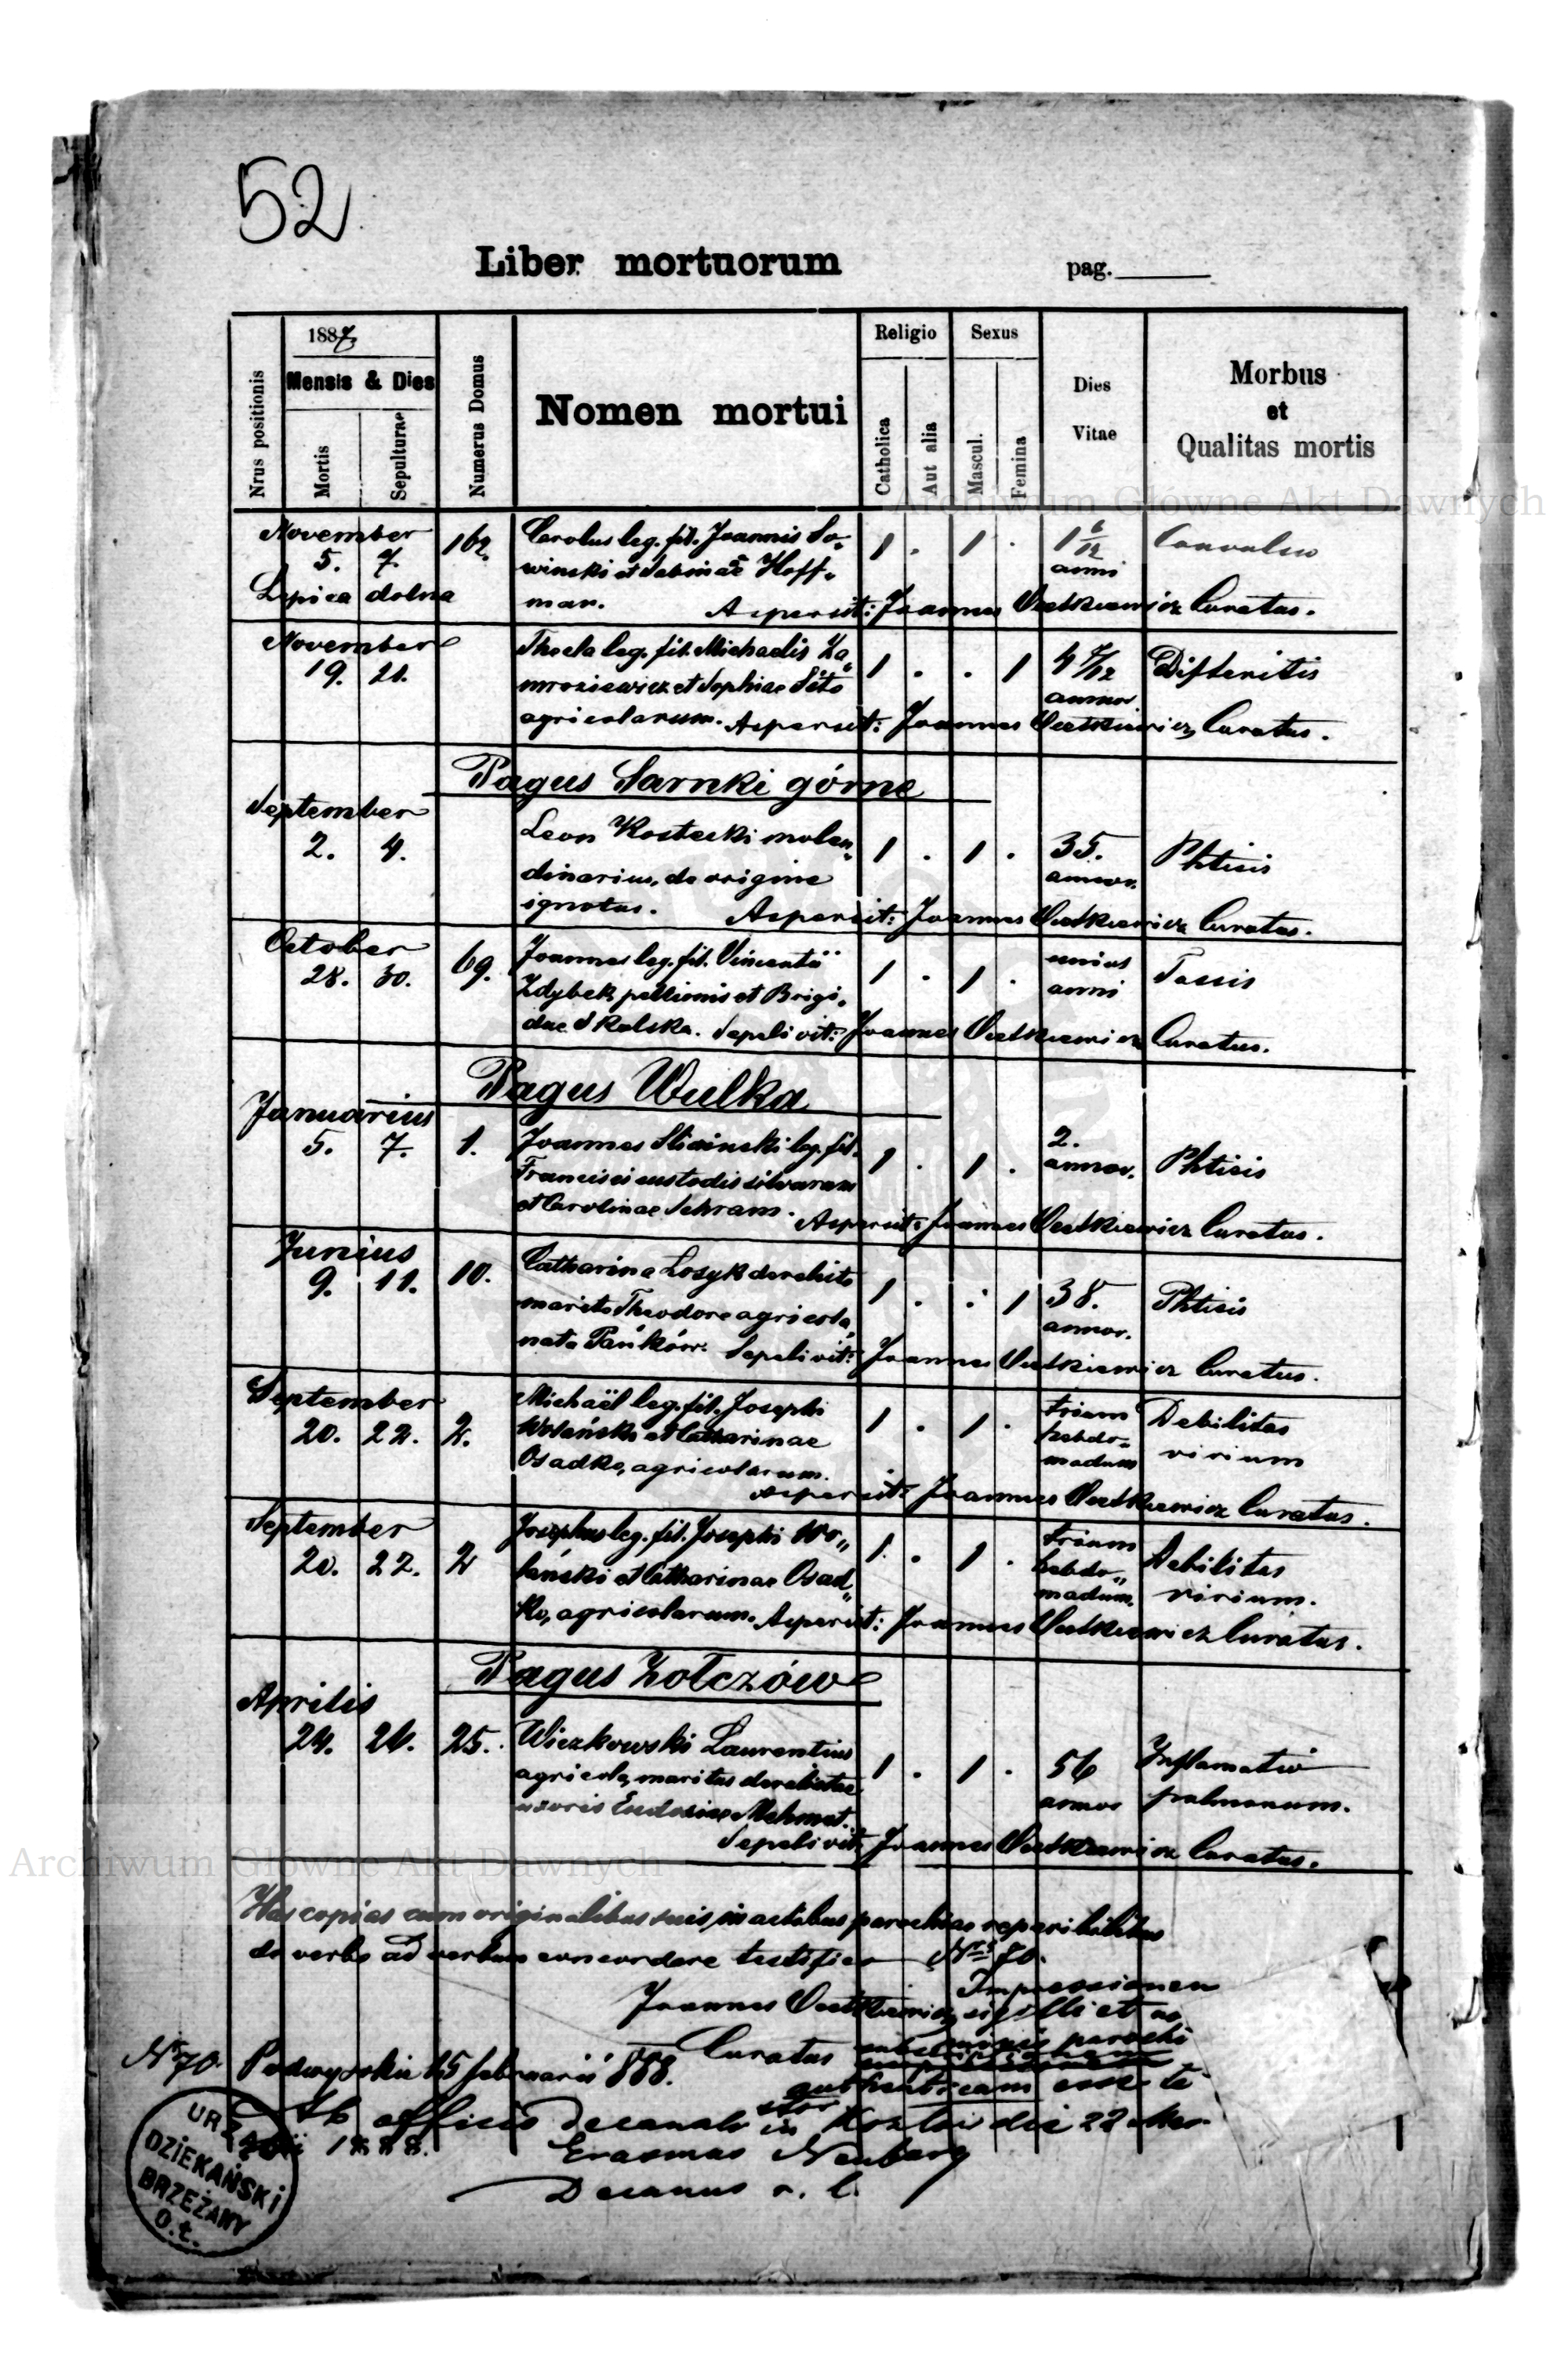 52
Liber mortuorum
pag.
1887
Religio
Sexus
Nrus positionis
Mensis & Dies
Mortis
Sepulturae
Numerus Domus
Nomen mortui
Catholica
Aut alia
Mascul.
Femina
Dies
Vitae
Morbus
et
Qualitas mortis
Archiwum Główne Akt Dawnych
November
5. 7. 162. Carolus leg. fil. Joannis So„ 1 . 1 .
winski et Sabinae Hoff„ anni
Lipica dolna man. Aspersit: Joannes Curatus.
November
19. 21. Thecla leg. fil. Michaelis Za„ 1 . . 1 4 7/12 Difteritis
mroziewicz et Sophiae annor.
agricolarum. Aspersit: Joannes Curatus.
Pagus Sarnki górne
September
2. 4. Leon Kostecki molen„ 1 . 1 . 35. Phtisis
dinarius, de origine annor.
ignotus. Aspersit: Joannes Curatus.
October
28. 30. 69. Joannes leg. fil. Vincentii 1 . 1 . unius Tussis
Zdybek pellionis et Brigi„ anni
dae Skalska. Sepelivit: Joannes Curatus.
Pagus Wulka
Januarius
5. 7. 1. Joannes leg. fil. 1 . 1 . 2. Phtisis
Francisci custodis silvarum annor.
et Carolinae Schram. Aspersit: Joannes Curatus.
Junius
9. 11. 10. Catharina Losyk derelicto 1 . . 1 38. Phtisis
marito Theodoro agricola, annor.
nata Pańków. Sepelivit: Joannes Curatus.
September
20. 22. 2. Michaël leg. fil. Josephi 1 . 1 . trium Debilitas
Wolański et Catharinae hebdo„ virium
Osadko, agricolarum. madum
Aspersit: Joannes Curatus.
September
20. 22. 2 Josephus leg. fil. Josephi Wo„ 1 . 1 . trium Debilitas
lański et Catharinae Osad„ hebdo„ virium.
ko, agricolarum. Aspersit: madum. Joannes Curatus.
Pagus Zołczów
Aprilis
24. 26. 25. Wiczkowski Laurentius 1 . 1 . 56 Inflamatio
agricola, maritus derelictae annor pulmonum.
uxoris Eudoxiae
Sepelivit: Joannes Curatus.
Archiwum Główne Akt Dawnych
Has copias cum originalibus suis in actibus parochiae reperibilibus
de verbo ad verbum concordare testifico Nrs 70.
Impressionem
Joannes sigilli et
Curatus parochi
No 70. Podwysokie 15 februarii 888.
authenticam esse te
stor
Ab officio Decanali in Kozlów die 22 Mar
tii 1888.
Erasmus Neuburg
Decanus r. l.
URZĄD
DZIEKAŃSKI
BRZEŻANY
O.Ł.